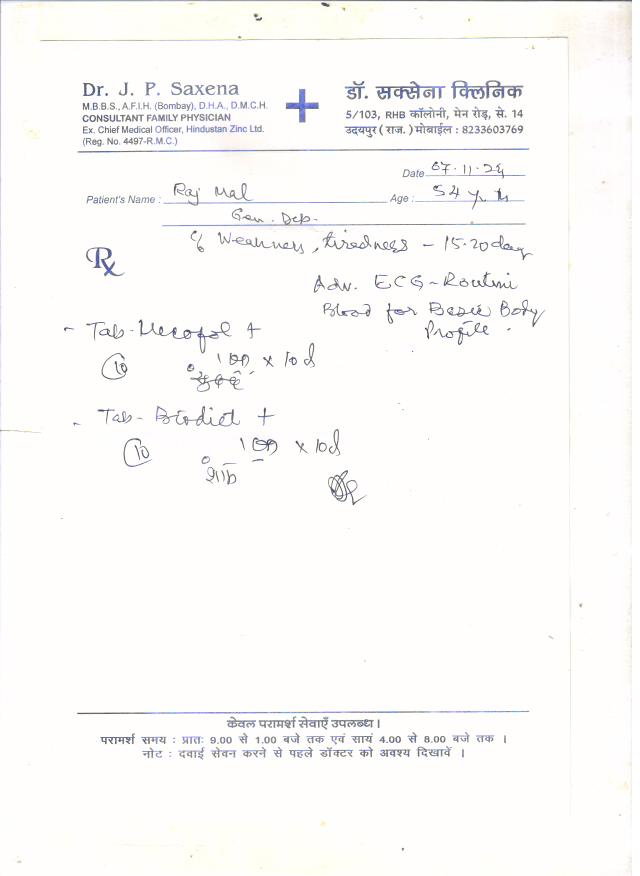 Dr. J. P. Saxena
M.B.B.S., A.F.I.H. (Bombay), D.H.A., D.M.C.H.
CONSULTANT FAMILY PHYSICIAN
Ex. Chief Medical Officer, Hindustan Zinc Ltd.
(Reg. No. 4497-R.M.C.)
डॉ. सक्सेना क्लिनिक
5/103, RHB कॉलोनी, मेन रोड़, से. 14
उदयपुर ( राज. ) मोबाईल : 8233603769
Date 07.11.24
Patient's Name : Raj Mal Age : 54 yrs
Gen. Deb.
c/o Weakness, tiredness - 15-20 days
Rx
Adv. ECG - Routine
Blood for Basic Body
Profile.
- Tab - Mecofol +
10 1 OD x 10 d
सुबह
- Tab - Biodiet +
10 1 OD x 10 d
शाम
केवल परामर्श सेवाएँ उपलब्ध ।
परामर्श समय : प्रातः 9.00 से 1.00 बजे तक एवं सायं 4.00 से 8.00 बजे तक ।
नोट : दवाई सेवन करने से पहले डॉक्टर को अवश्य दिखावें ।